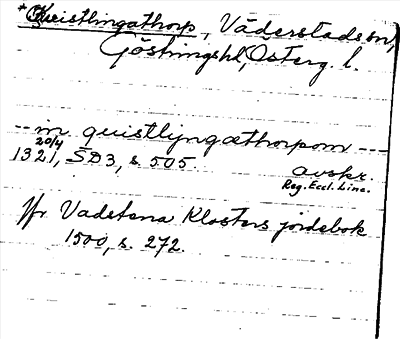 *Queistlingathorp, Väderstads sn,
Göstringshd, Österg. l.
-- in quistlyngæthorpom ---
20/4
1321, SD3, s. 505. avskr.
Reg. Eccl. Linc.
Jfr Vadstena Klosters jordebok
1500, s. 272.